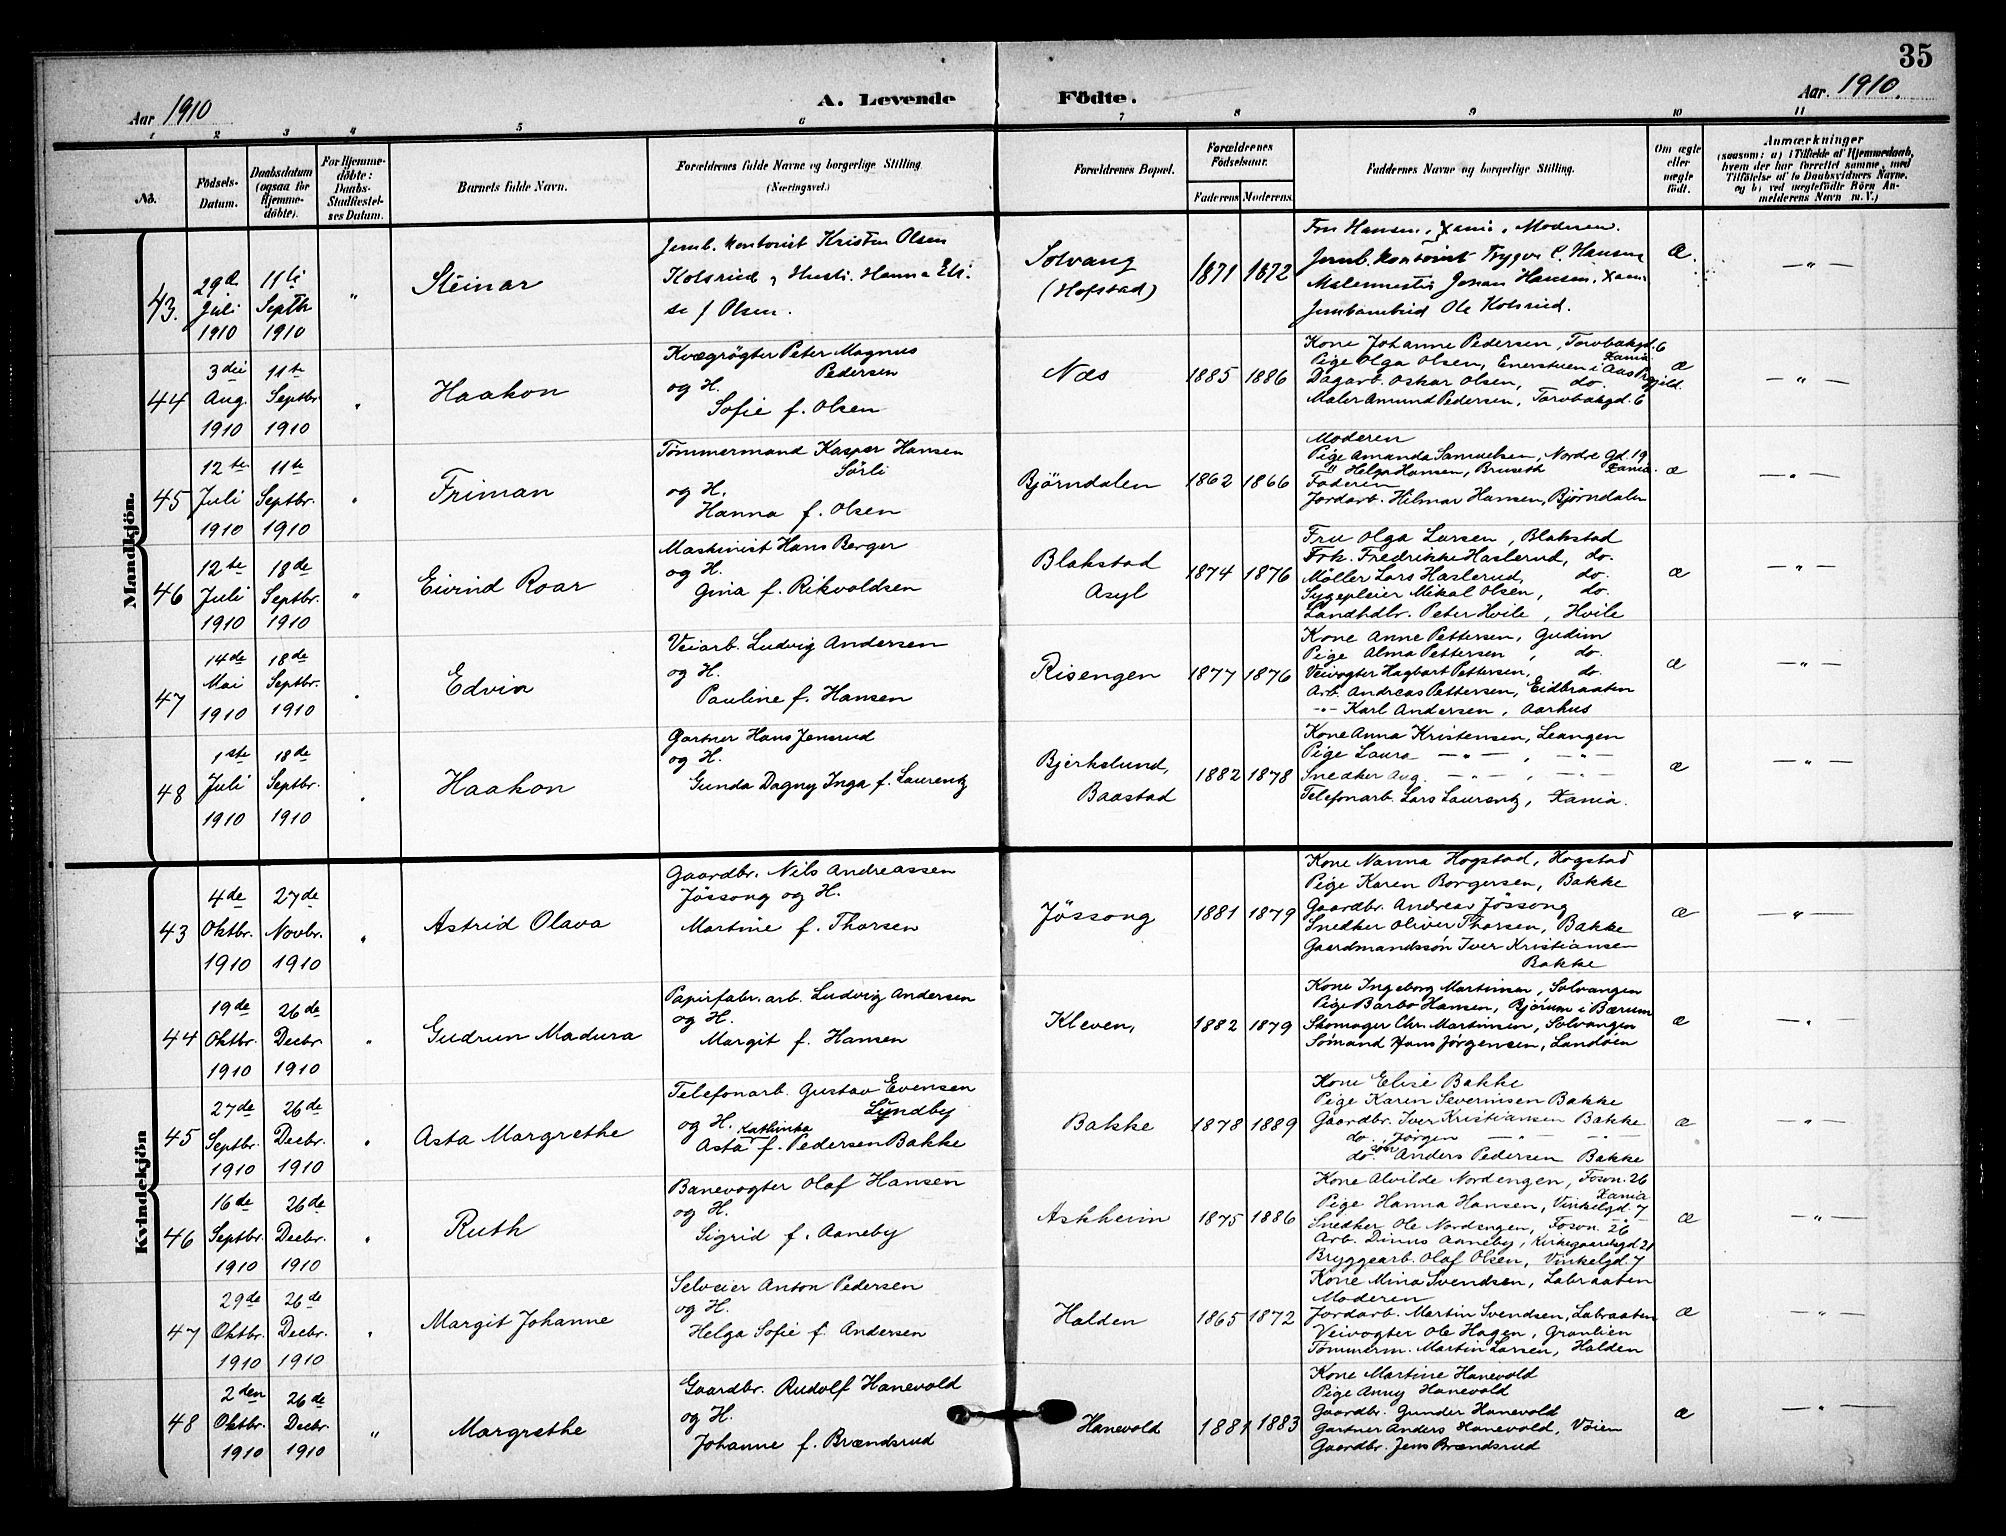 35
Aar 1910
A. Levende Födte.
Aar. 1910.
1 2 3 4 5 6 7 8 9 10 11
No.
Födsels-Datum.
Daabsdatum (ogsaa for Hjemme-döbte).
For Hjemme-döbte: Daabs-Stadfæstel-ses Datum.
Barnets fulde Navn.
Forældrenes fulde Navne og borgerlige Stilling. (Næringsvei.)
Forældrenes Bopæl.
Forældrenes Födselsaar.
Faderens. Moderens.
Faddernes Navne og borgerlige Stilling.
Om ægte eller uægte födt.
Anmærkninger
(saasom: a) i Tilfælde af Hjemmedaab, hvem der har forrettet samme, med Tilföielse af to Daabsvidners Navne, og b) ved uægtefödte Börn An-melderens Navn m. V.)
Mandkjön.
43. 29de Juli 1910
11te Septbr 1910
"
Steinar
Jernb. kontorist Kristen Olsen
Kolsrud og Hustr. Hanna Eli-
se f Olsen.
Solvang
(Hofstad)
1871 1872
Fru Hansen, Xania, Moderen.
Jernb. kontorist Trygve C. Hansen
Malermester Johan Hansen, Xania
Jernbanebud Ole Kolsrud.
Æ.
— " —
44 3die Aug. 1910
11te Septbr 1910
"
Haakon
Kvægrøgter Peter Magnus
Pedersen
og H.
Sofie f. Olsen
Næs
1885 1886
Kone Johanne Pedersen, Torvbakgd. 6
Xania.
Pige Olga Olsen, Enerstuen i Aas Prgjeld.
Dagarb. Oskar Olsen, do.
Maler Amund Pedersen, Torvbakgd. 6
Æ
— " —
45 12te Juli 1910
11te Septbr. 1910
"
Friman
Tømmermand Kasper Hansen
Sørli
og H.
Hanna f. Olsen
Bjørndalen
1862 1866
Moderen
Pige Amanda Samuelsen, Nordre Gd. 19
" Helga Hansen, Bruseth Xania.
Faderen
Jordarb. Hilmar Hansen, Bjørndalen
Æ
— " —
46 12te Juli 1910
18de Septbr. 1910
"
Eivind Roar
Maskinist Hans Berger
og H.
Gina f. Rikvoldsen
Blakstad
Asyl
1874 1876
Fru Olga Larsen, Blakstad
Frk. Fredrikke Haslerud, do.
Møller Lars Haslerud, do.
Sygepleier Mikal Olsen, do.
Landhdbr. Peter Hvile, Hvile
Æ
— " —
47 14de Mai 1910
18de Septbr. 1910
"
Edvin
Veiarb. Ludvig Andersen
og H.
Pauline f. Hansen
Risengen
1877 1876
Kone Anne Pettersen, Gudim
Pige Alma Pettersen, do.
Veivogter Hagbart Pettersen, do.
Arb. Andreas Pettersen, Eidbraaten
-"- Karl Andersen, Aarhus
Æ
— " —
48 1ste Juli 1910
18de Septbr. 1910
"
Haakon
Gartner Hans Jensrud
og H.
Gunda Dagny Inga f. Laurentz
Bjerkelund,
Baastad
1882 1878
Kone Anna Kristensen, Leangen
Pige Laura — " — , — " —
Snedker Aug. — " — , — " —
Telefonarb. Lars Laurentz, Xania.
Æ
— " —
Kvindekjön
43 4de Oktbr. 1910
27de Novbr. 1910
"
Astrid Olava
Gaardbr. Nils Andreassen
Jøssong og H.
Martine f. Thorsen
Jøssong
1881 1879
Kone Nanna Hogstad, Hogstad
Pige Karen Borgersen, Bakke
Gaardbr. Andreas Jøssong
Snedker Oliver Thorsen, Bakke
Gaardmandssøn Iver Kristiansen
Bakke
Æ
— " —
44 19de Oktbr. 1910
26de Decbr. 1910
"
Gudrun Madura
Papirfabr. arb. Ludvig Andersen
og H.
Margit f. Hansen
Kleven,
1882 1879
Kone Ingeborg Martinsen, Solvangen
Pige Barbo Hansen, Bjørum i Bærum
Skomager Chr. Martinsen, Solvangen
Sømand Hans Jørgensen, Landøen
Æ
— " —
45 27de Septbr. 1910
26de Decbr. 1910
"
Asta Margrethe
Telefonarb. Gustav Evensen
Lundby
og H. Kathinka
Asta f. Pedersen Bakke
Bakke
1878 1889
Kone Elise Bakke
Pige Karen Severinsen Bakke
Gaardbr. Iver Kristiansen Bakke
do. Jørgen — " — — " —
do. søn Anders Pedersen Bakke
Æ
— " —
46 16de Septbr. 1910
26de Decbr. 1910
"
Ruth
Banevogter Olaf Hansen
og H.
Sigrid f. Aaneby
Askheim
1875 1886
Kone Alvilde Nordengen, Fosn. 26
Xania
Pige Hanna Hansen, Vinkelgd. 7
Snedker Ole Nordengen, Fosn. 26
Arb. Dinus Aaneby, Kirkegaardsgd 21
Bryggearb. Olaf Olsen, Vinkelgd. 7
Æ
— " —
47 29de Oktbr. 1910
26de Decbr. 1910
"
Margit Johanne
Selveier Anton Pedersen
og H.
Helga Sofie f. Andersen
Halden
1865 1872
Kone Mina Svendsen, Labraaten
Moderen
Jordarb. Martin Svendsen, Labraaten
Veivogter Ole Hagen, Granlien
Tømmerm. Martin Larsen, Halden
Æ
— " —
48 2den Oktbr. 1910
26de Decbr. 1910
"
Margrethe
Gaardbr. Rudolf Hanevold
og H.
Johanne f. Brændsrud
Hanevold
1881 1883
Kone Martine Hanevold
Pige Anny Hanevold
Gaardbr. Gunder Hanevold
Gartner Anders Hanevold, Vøien
Gaardbr. Jens Brændsrud
Æ
— " —